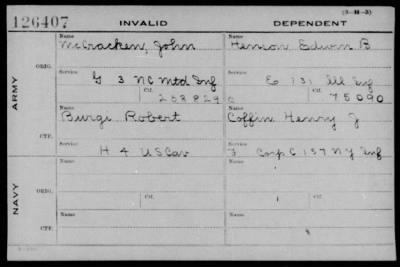 (3-M-3)
126407 INVALID DEPENDENT
Name Name
McCracken, John Henson Edwin B
ORIG.
Service Service
G 3 NC Mtd Inf E 131 Ill Inf
Ctf. Ctf.
258829 75090
ARMY
Name Name
Burge Robert Coffin Henry J
Service Service
H 4 US Cav F Corp C 137 N Y Inf
CTF.
Name Ctf. Name Ctf.
ORIG.
NAVY
Name Name
CTF.